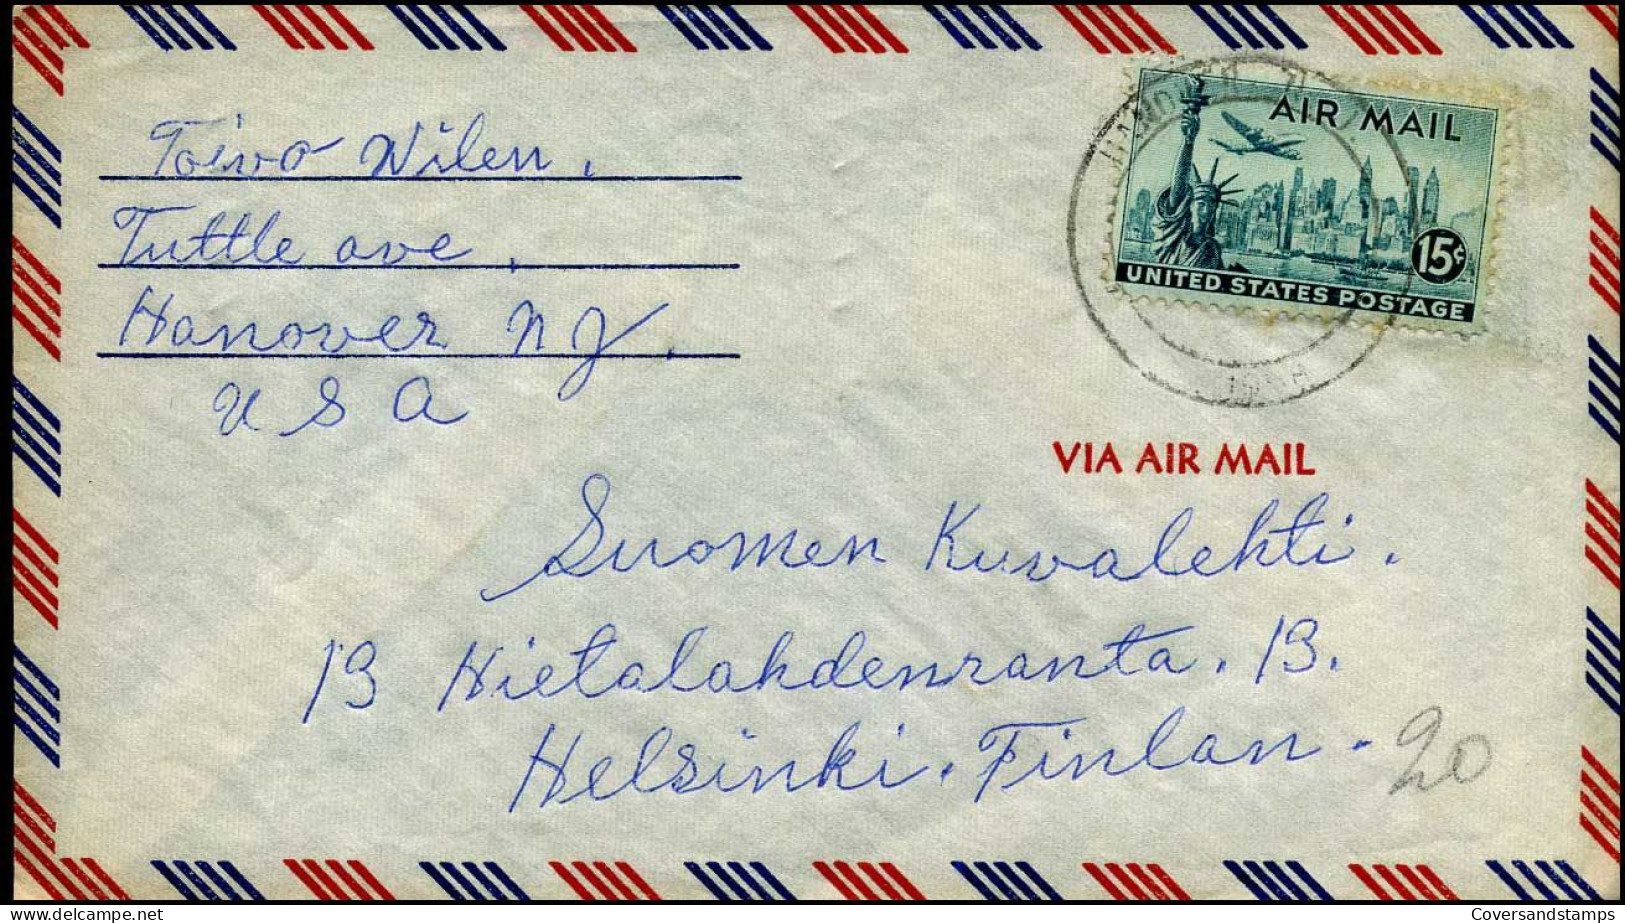 Toivo Wilen.
Tuttle ave.
Hanover N J.
U S A
AIR MAIL
15¢
UNITED STATES POSTAGE
VIA AIR MAIL
Suomen Kuvalehti.
13 Hietalahdenranta. 13.
Helsinki. Finlan.
20
delcampe.net
Coversandstamps